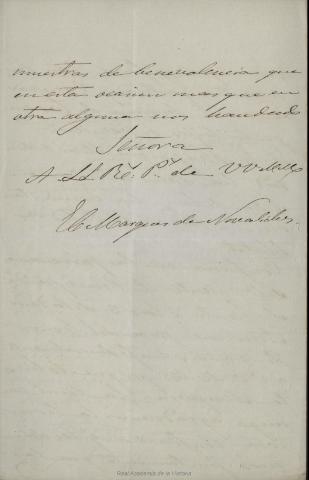 muestras de benevolencia que
en esta ocasion mas que en
otra alguna nos han dado
Señora
A LL Rˢ. Pˢ. de VV MM
El Marques de Novaliches
Real Academia de la Historia